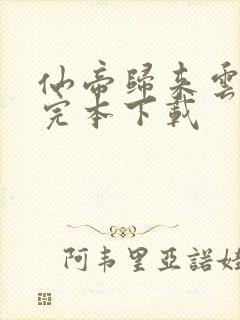 仙帝歸来雲
完本下載
阿韦里亞諾娃